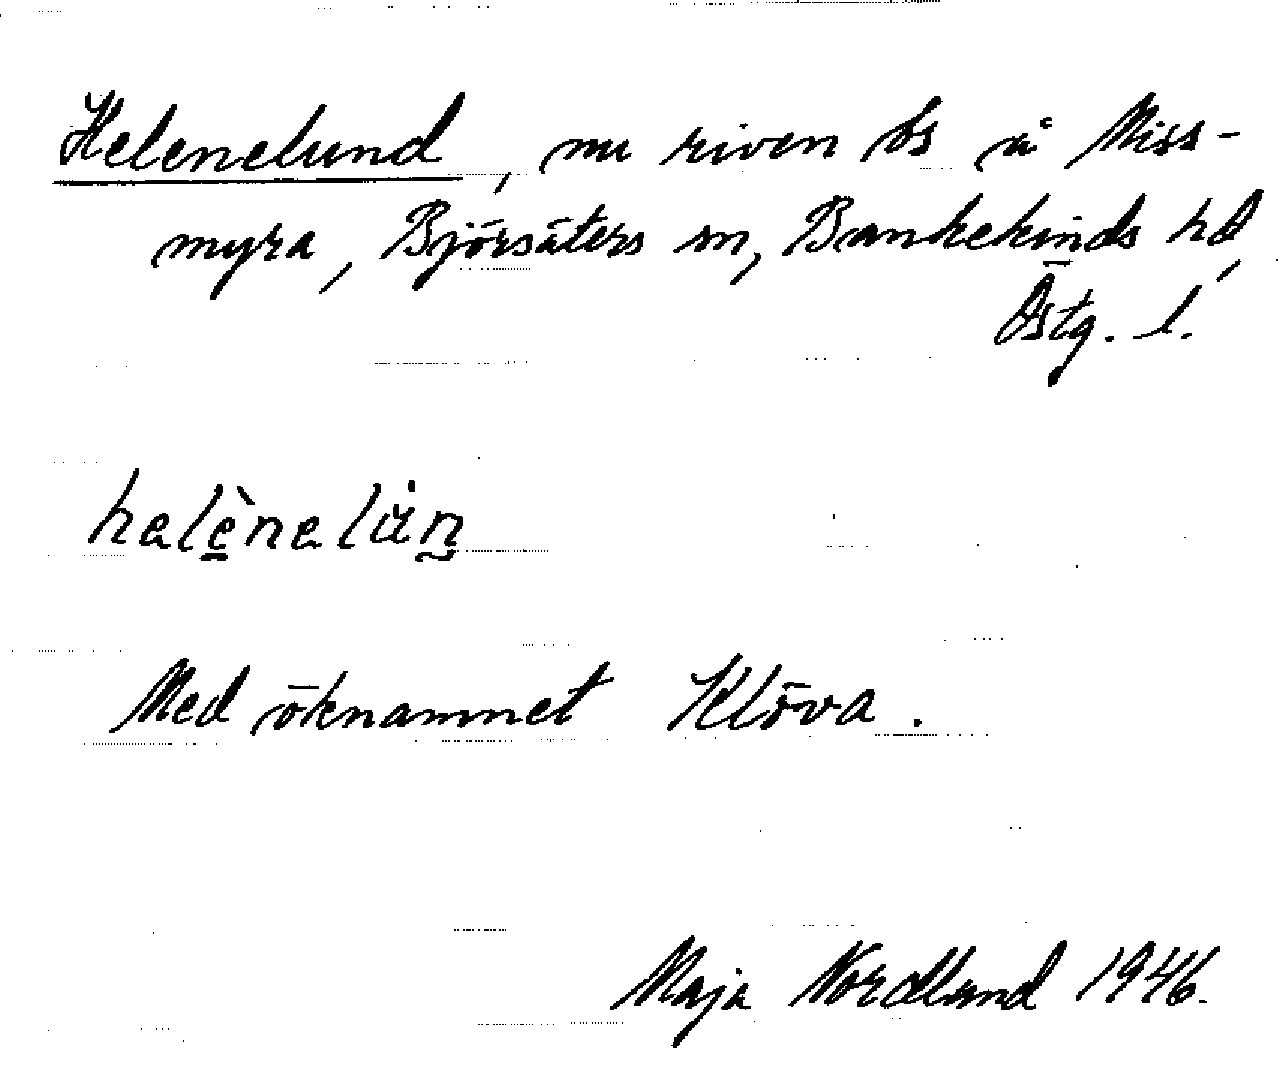 Helenelund, nu riven bs å Miss-
myra, Björsäters sn, Bankekinds hd,
Östg. l.
helènelún
Med öknamnet Klöva.
Maja Nordlund 1946.